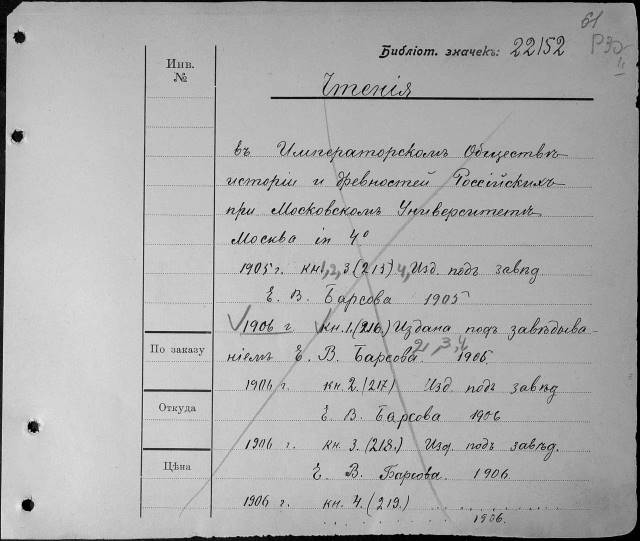 61
Библіот. значекъ: 22152
Инв.
№
Чтенія
въ Императорскомъ Обществѣ
исторіи и древностей Россійскихъ
при Московскомъ Университетѣ
Москва in 4°
1905 г. кн 1, 2, 3 (215) 4, Изд. подъ завѣд
Е. В. Барсова 1905
1906 г. кн. 1. (216.) Издана подъ завѣдыва-
2, 3, 4
По заказу
ніемъ Е. В. Барсова. 1906.
1906 г. кн. 2. (217) Изд подъ завѣд
Откуда
Е. В. Барсова 1906
1906 г. кн. 3. (218.) Изд. подъ завѣд.
Цѣна
Е. В. Барсова. 1906.
1906 г. кн. 4. (219.) . . . . . . . . . . .
. . . . . . . . . 1906.